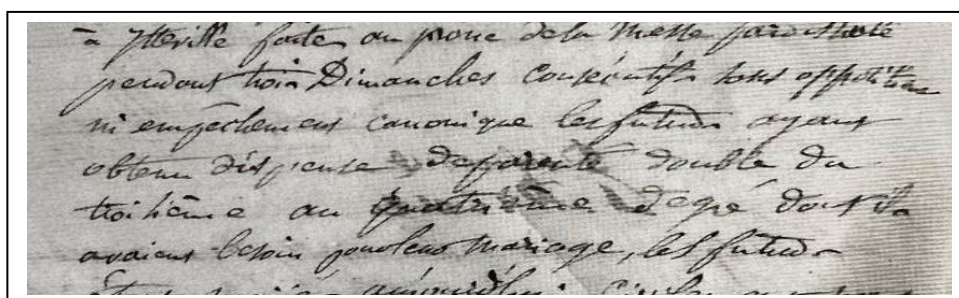 à Itteville faite au prone de la Messe paroissiale
pendant trois Dimanches consécutifs sans opposition
ni empêchement canonique les futurs ayant
obtenu dispense de parenté double du
troisième au quatrième degré dont ils
avaient besoin pour leur mariage, les futurs
aujourd'hui